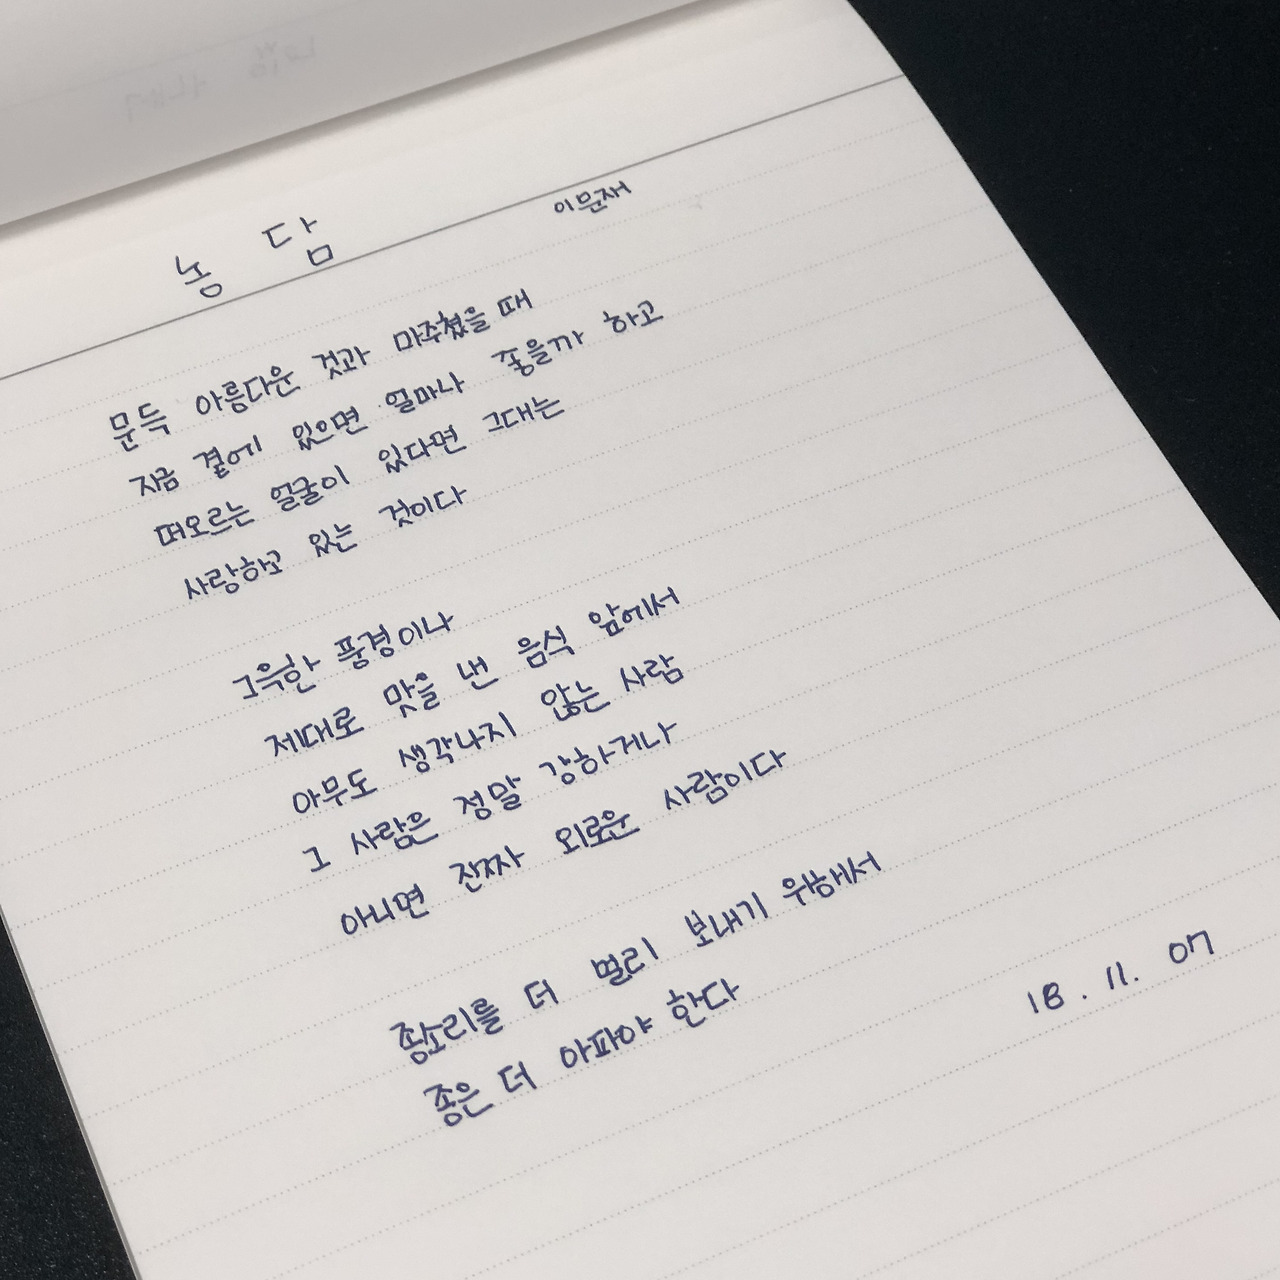 농 담
이문재
문득 아름다운 것과 마주쳤을 때
지금 곁에 있으면 얼마나 좋을까 하고
떠오르는 얼굴이 있다면 그대는
사랑하고 있는 것이다
그윽한 풍경이나
제대로 맛을 낸 음식 앞에서
아무도 생각나지 않는 사람
그 사람은 정말 강하거나
아니면 진짜 외로운 사람이다
종소리를 더 멀리 보내기 위해서
종은 더 아파야 한다
18. 11. 07